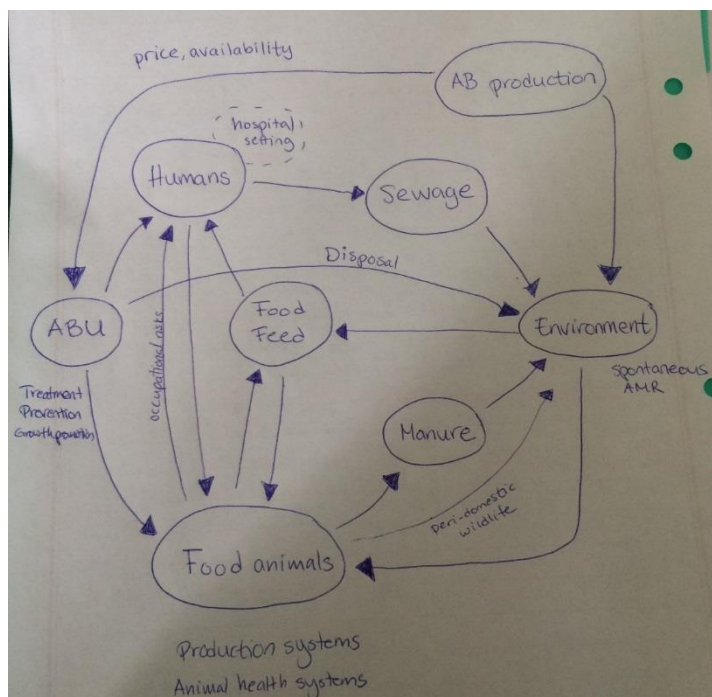 price, availability
AB production
hospital
setting
Humans
Sewage
Disposal
ABU
Food
Feed
Environment
occupational risks
spontaneous
AMR
Treatment
Prevention
Manure
peri-domestic
wildlife
Food animals
Production systems
Animal health systems